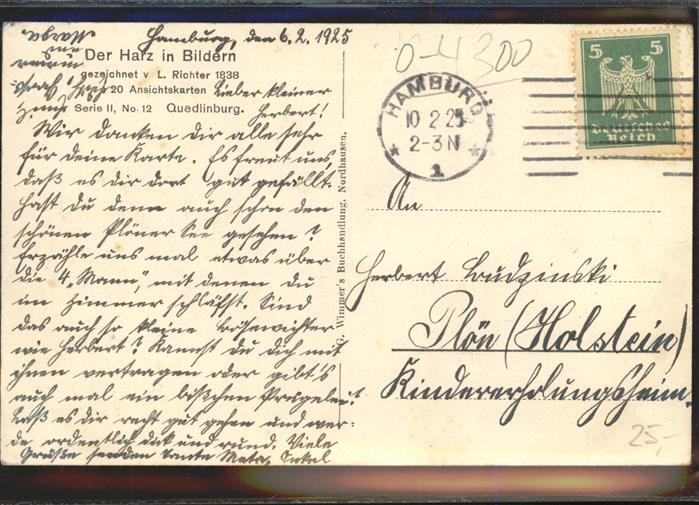 Hamburg, den 6.2.1925
Der Harz in Bildern
gezeichnet v. L. Richter 1838
20 Ansichtskarten
Serie II, No. 12 Quedlinburg.
Lieber kleiner
Herbert!
Wir danken dir alle sehr
für deine Karte. Es freut uns,
daß es dir dort gut gefällt.
Hast du denn auch schon den
schönen Plöner See gesehen?
Erzähle uns mal etwas über
die 4 „Mann", mit denen du
im Zimmer schläfst. Sind
das auch so kleine Bösewichter
wie Herbert? Kannst du dich mit
ihnen vertragen oder gibt's
auch mal ein bißchen Prügelei?
Laß es dir recht gut gehen und wer-
de ordentlich dick und rund. Viele
Grüße senden Tante Meta, Onkel
G. Wimmer's Buchhandlung, Nordhausen.
0-4300
HAMBURG
10 2 25
2-3 N
1
5 5
Deutsches
Reich
An
Herbert Budzinski
Plön (Holstein)
Kindererholungsheim.
25,-